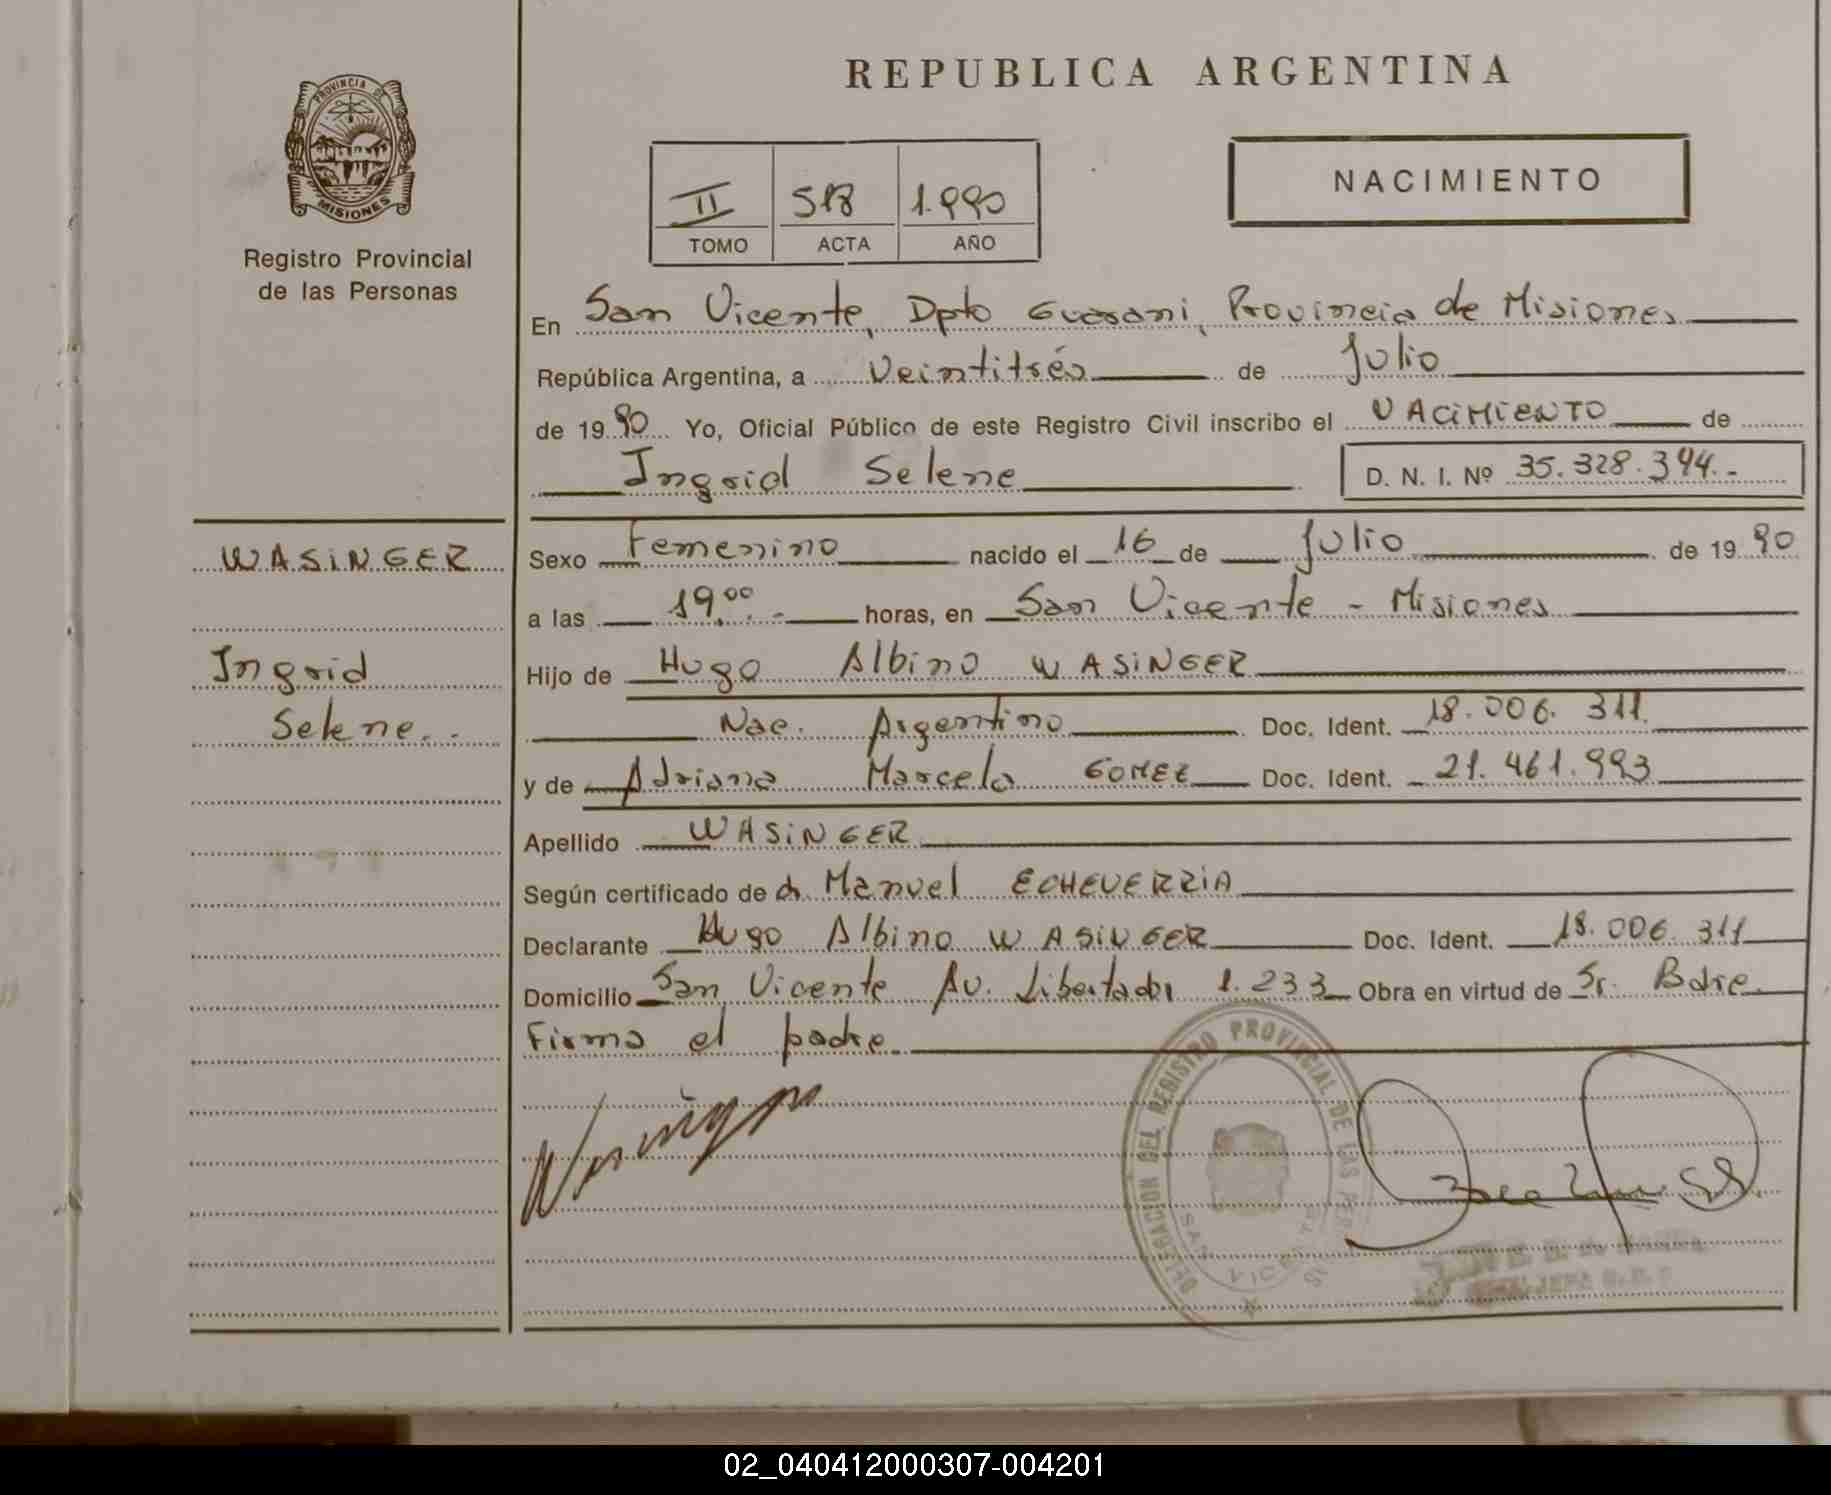 REPUBLICA ARGENTINA
PROVINCIA DE
MISIONES
Registro Provincial
de las Personas
II 518 1.990
TOMO ACTA AÑO
NACIMIENTO
En San Vicente, Dpto Guarani, Provincia de Misiones
República Argentina, a veintitrés de Julio
de 1990 Yo, Oficial Público de este Registro Civil inscribo el NACIMIENTO de
Ingrid Selene D. N. I. Nº 35.328.394.-
WASINGER
Ingrid
Selene..
Sexo Femenino nacido el 16 de Julio de 1990
a las 19,00.- horas, en San Vicente - Misiones
Hijo de Hugo Albino WASINGER
Nac. Argentino Doc. Ident. 18.006.311.
y de Adriana Marcela GOMEZ Doc. Ident. 21.461.993
Apellido WASINGER
Según certificado de dr. Manuel ECHEVERRIA
Declarante Hugo Albino WASINGER Doc. Ident. 18.006.311
Domicilio San Vicente Av. Libertador 1.233 Obra en virtud de Sr. Padre.
Firma el padre.
DELEGACION DEL REGISTRO PROVINCIAL DE LAS
SAN VICENTE
02_040412000307-004201